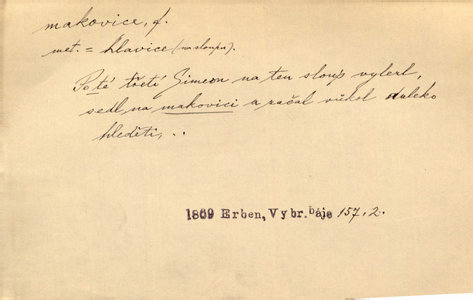 makovice, f.
met. = hlavice (na sloupu).
Po té třetí Simeon na ten sloup vylezl,
sedl na makovici a začal vůkol daleko
hleděti, ..
1869 Erben, Vybr. báje 157, 2.